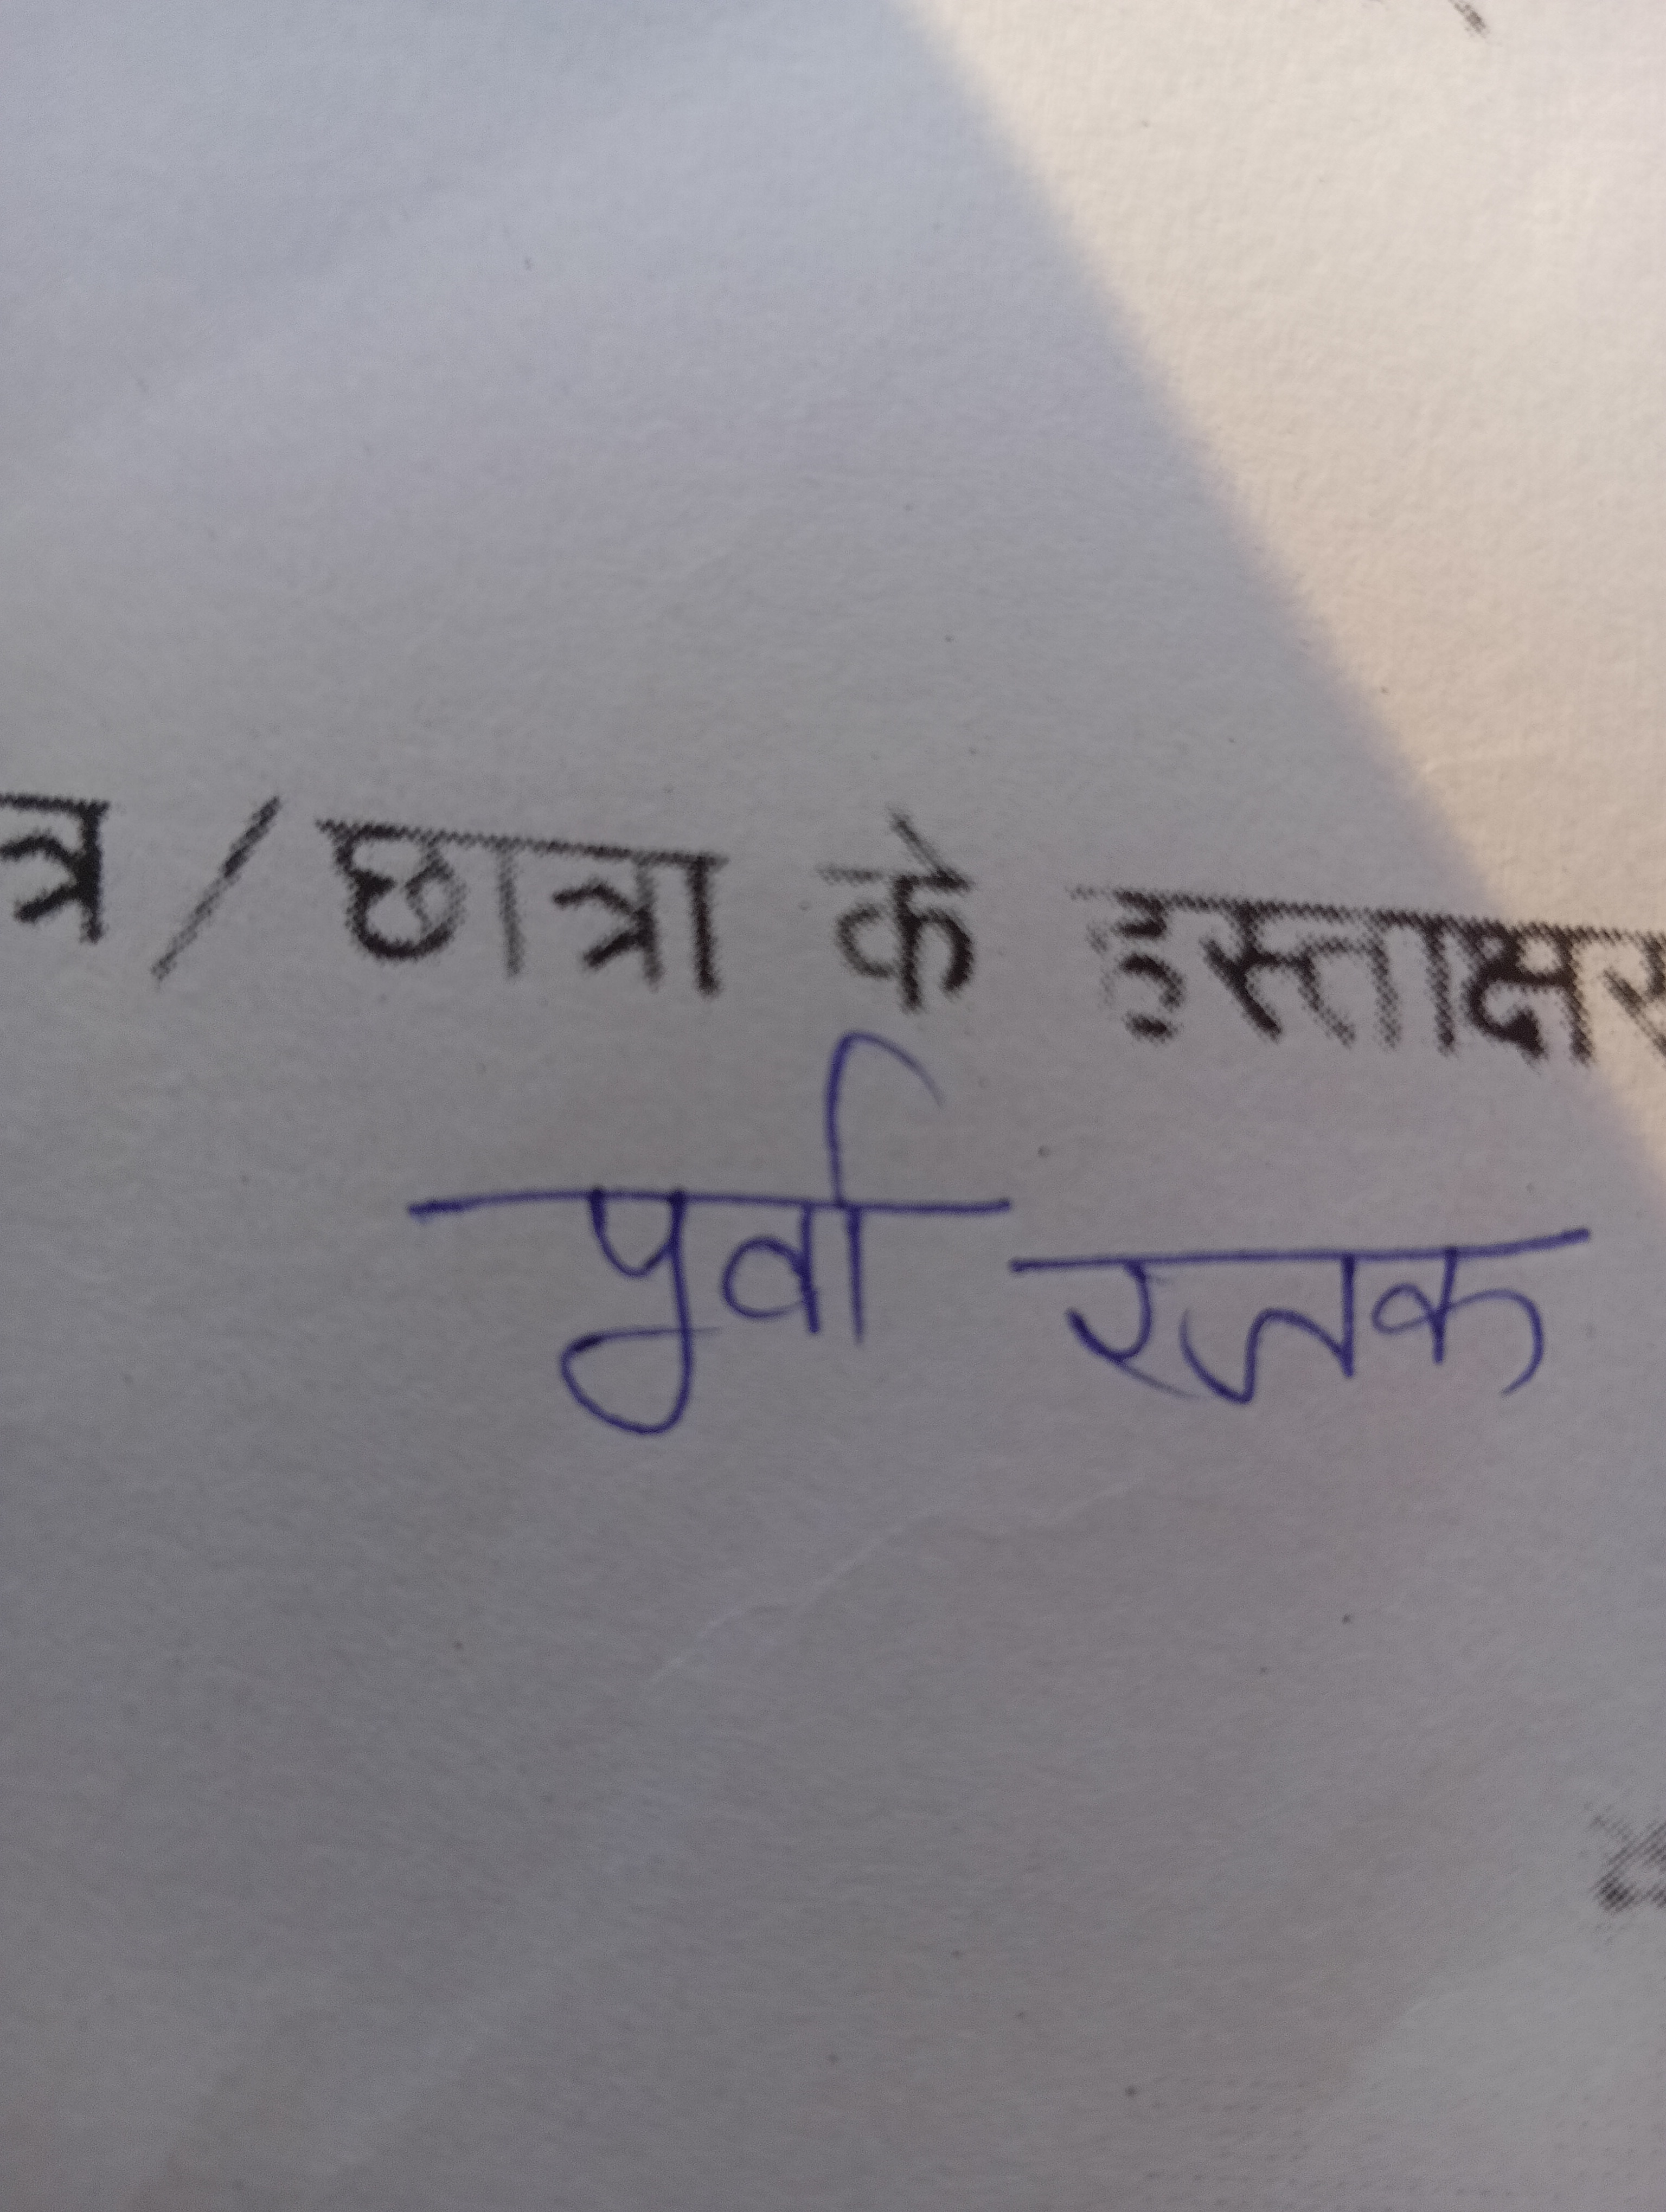 त्र / छात्रा के हस्ताक्षर
पुर्वा रजक